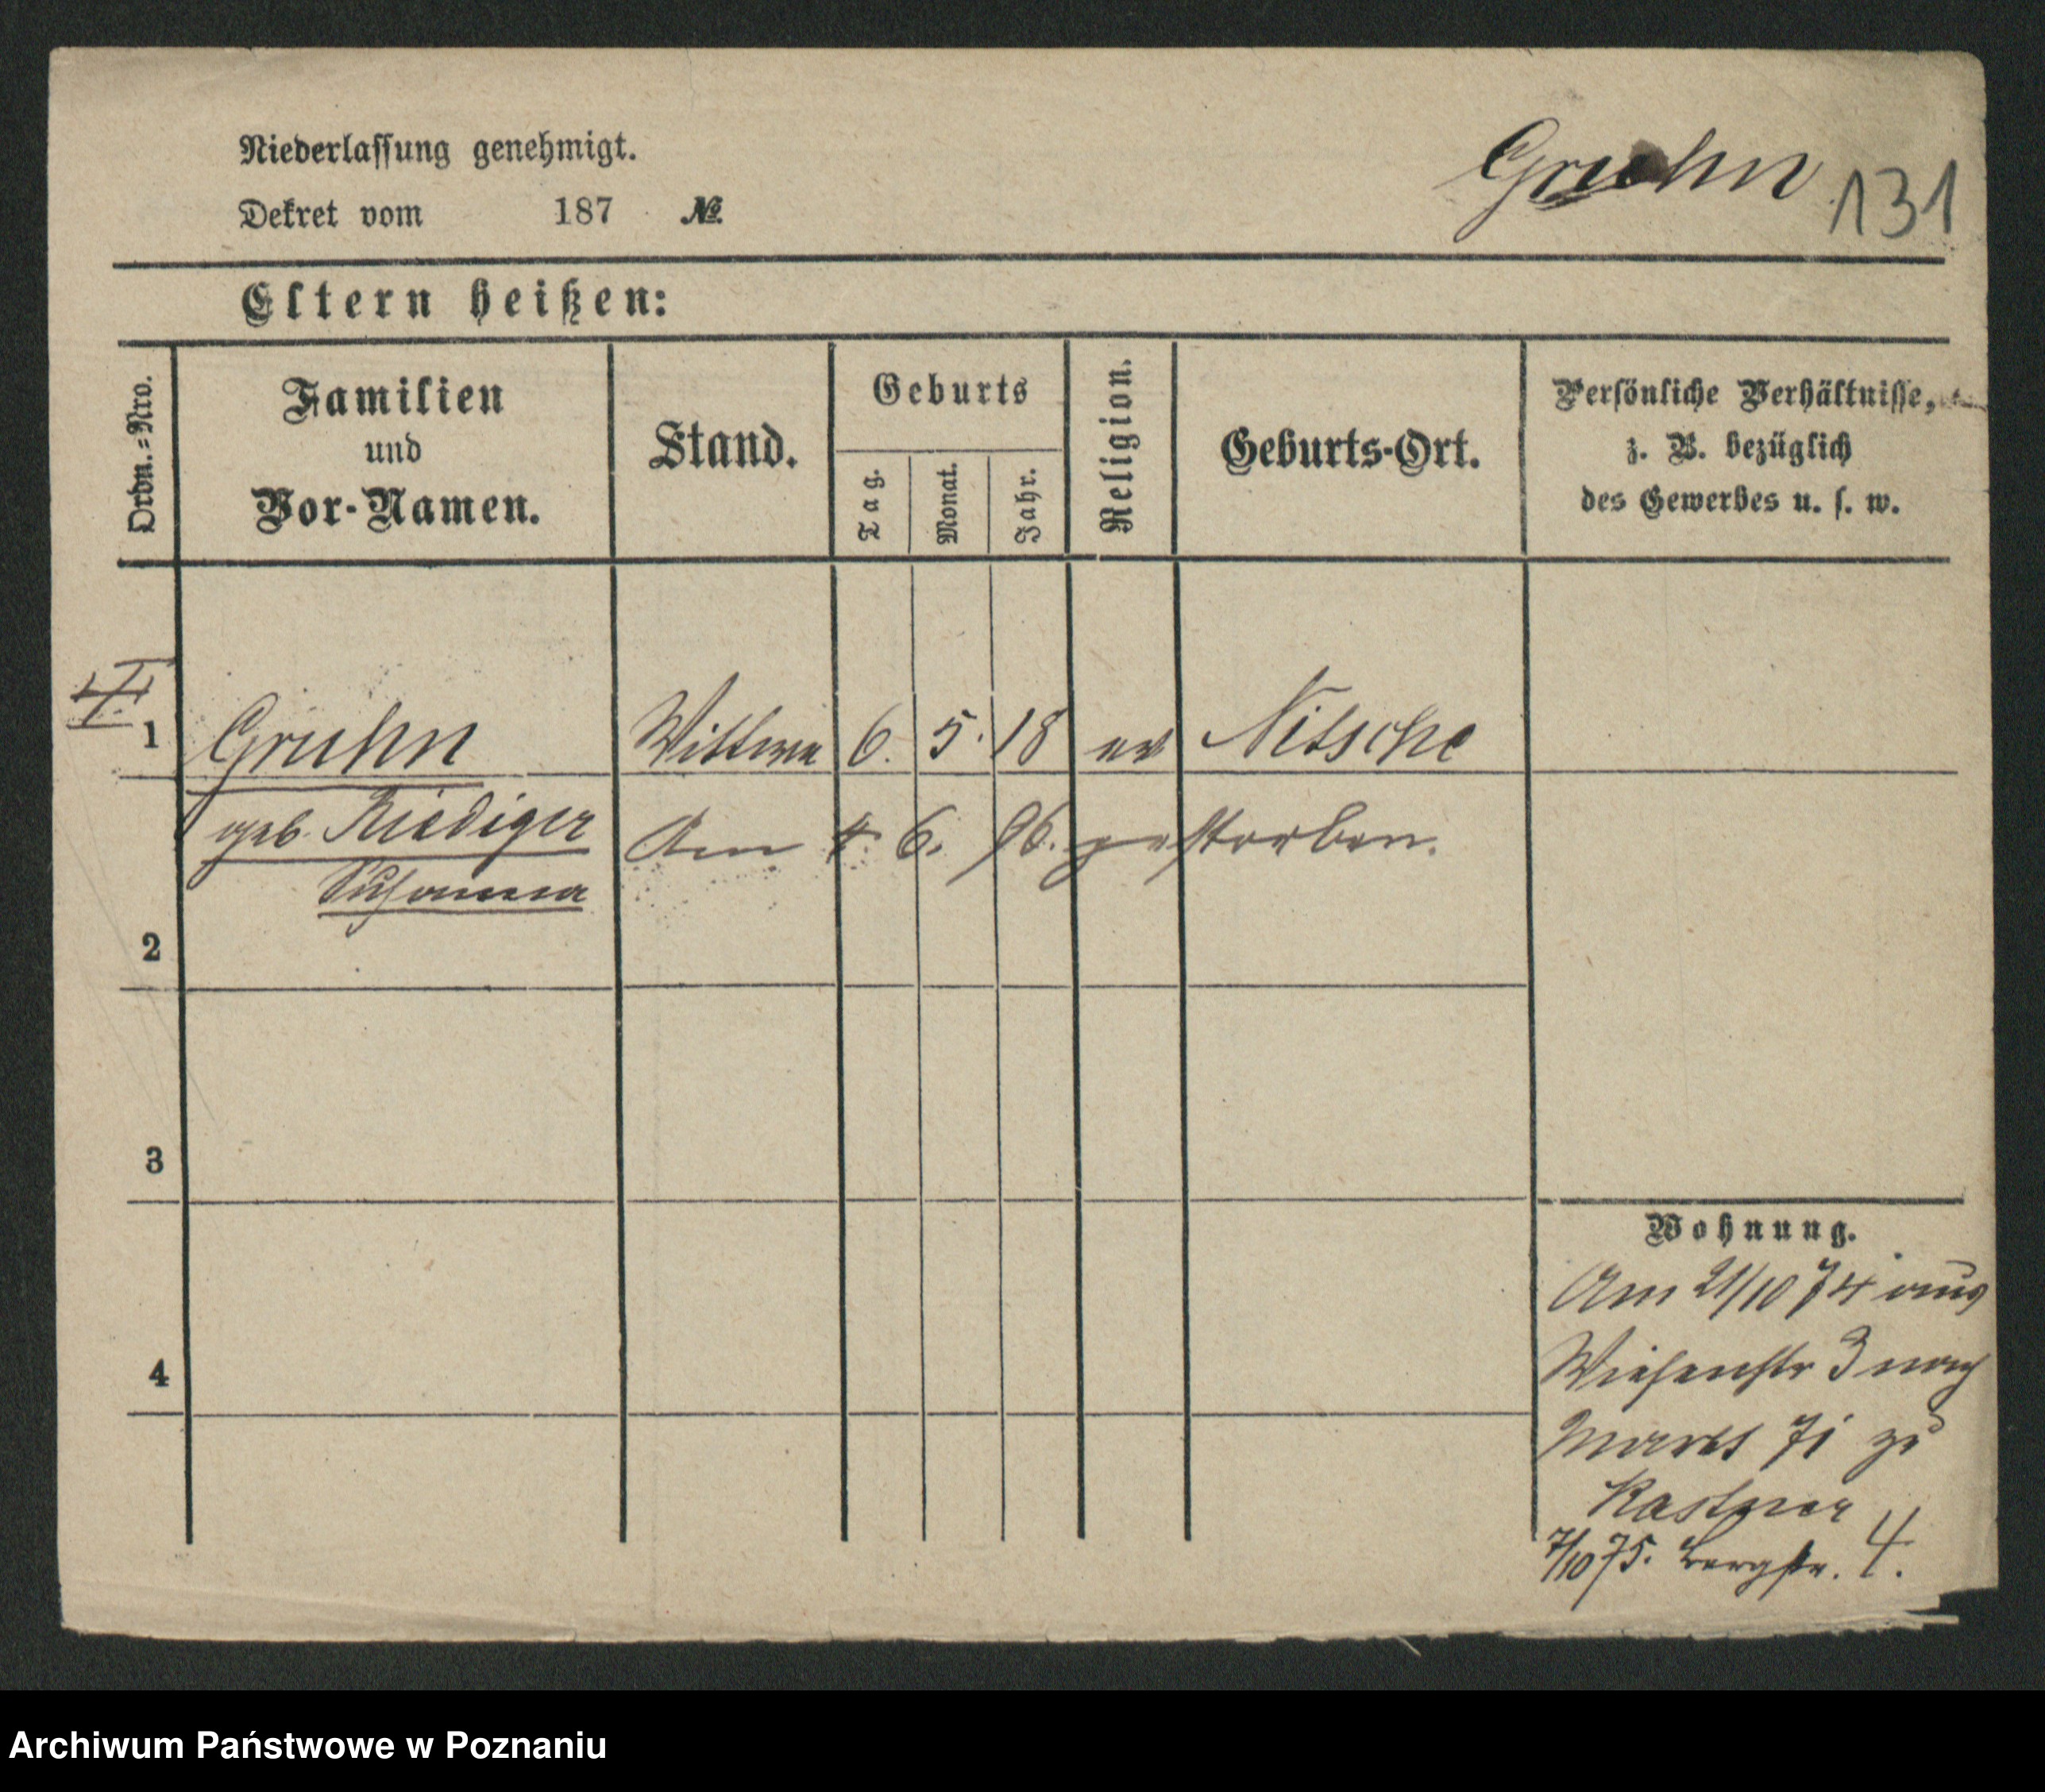 Niederlassung genehmigt.
Dekret vom 187 №
Gruhn 131
Eltern heißen:
Ordn.=Nro.
Familien
und
Vor-Namen.
Stand.
Geburts
Tag.
Monat.
Jahr.
Religion.
Geburts-Ort.
Persönliche Verhältnisse,
z. B. bezüglich
des Gewerbes u. s. w.
1 Gruhn Wittwe 6. 5. 18 ev Nitsche
geb. Riediger Am 4. 6. 96. gestorben.
Susanna
2
3
4
Wohnung.
Am 21/10 74 aus
Wiesenstr 3 nach
Markt 71 zu
Kastner
7/10 75. Bergstr. 4.
Archiwum Państwowe w Poznaniu